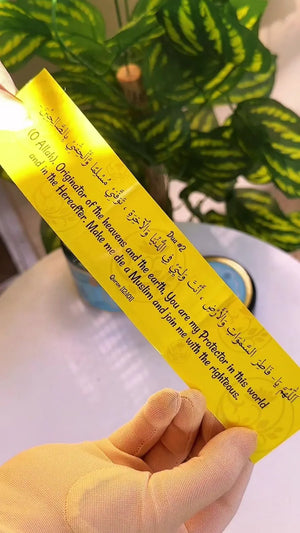 Dua #2
اَللّٰهُمَّ يَا- فَاطِرَ السَّمٰوَاتِ وَالْأَرْضِ ، أَنْتَ وَلِيِّيْ فِي الدُّنْيَا وَالْآخِرَةِ ، تَوَفَّنِيْ مُسْلِمًا وَأَلْحِقْنِيْ بِالصَّالِحِيْنَ
(O Allah), Originator of the heavens and the earth, You are my Protector in this world
and in the Hereafter. Make me die a Muslim and join me with the righteous.